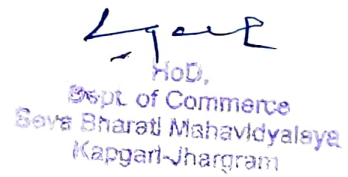 HoD,
Dept. of Commerce
Seva Bharati Mahavidyalaya
Kapgari-Jhargram